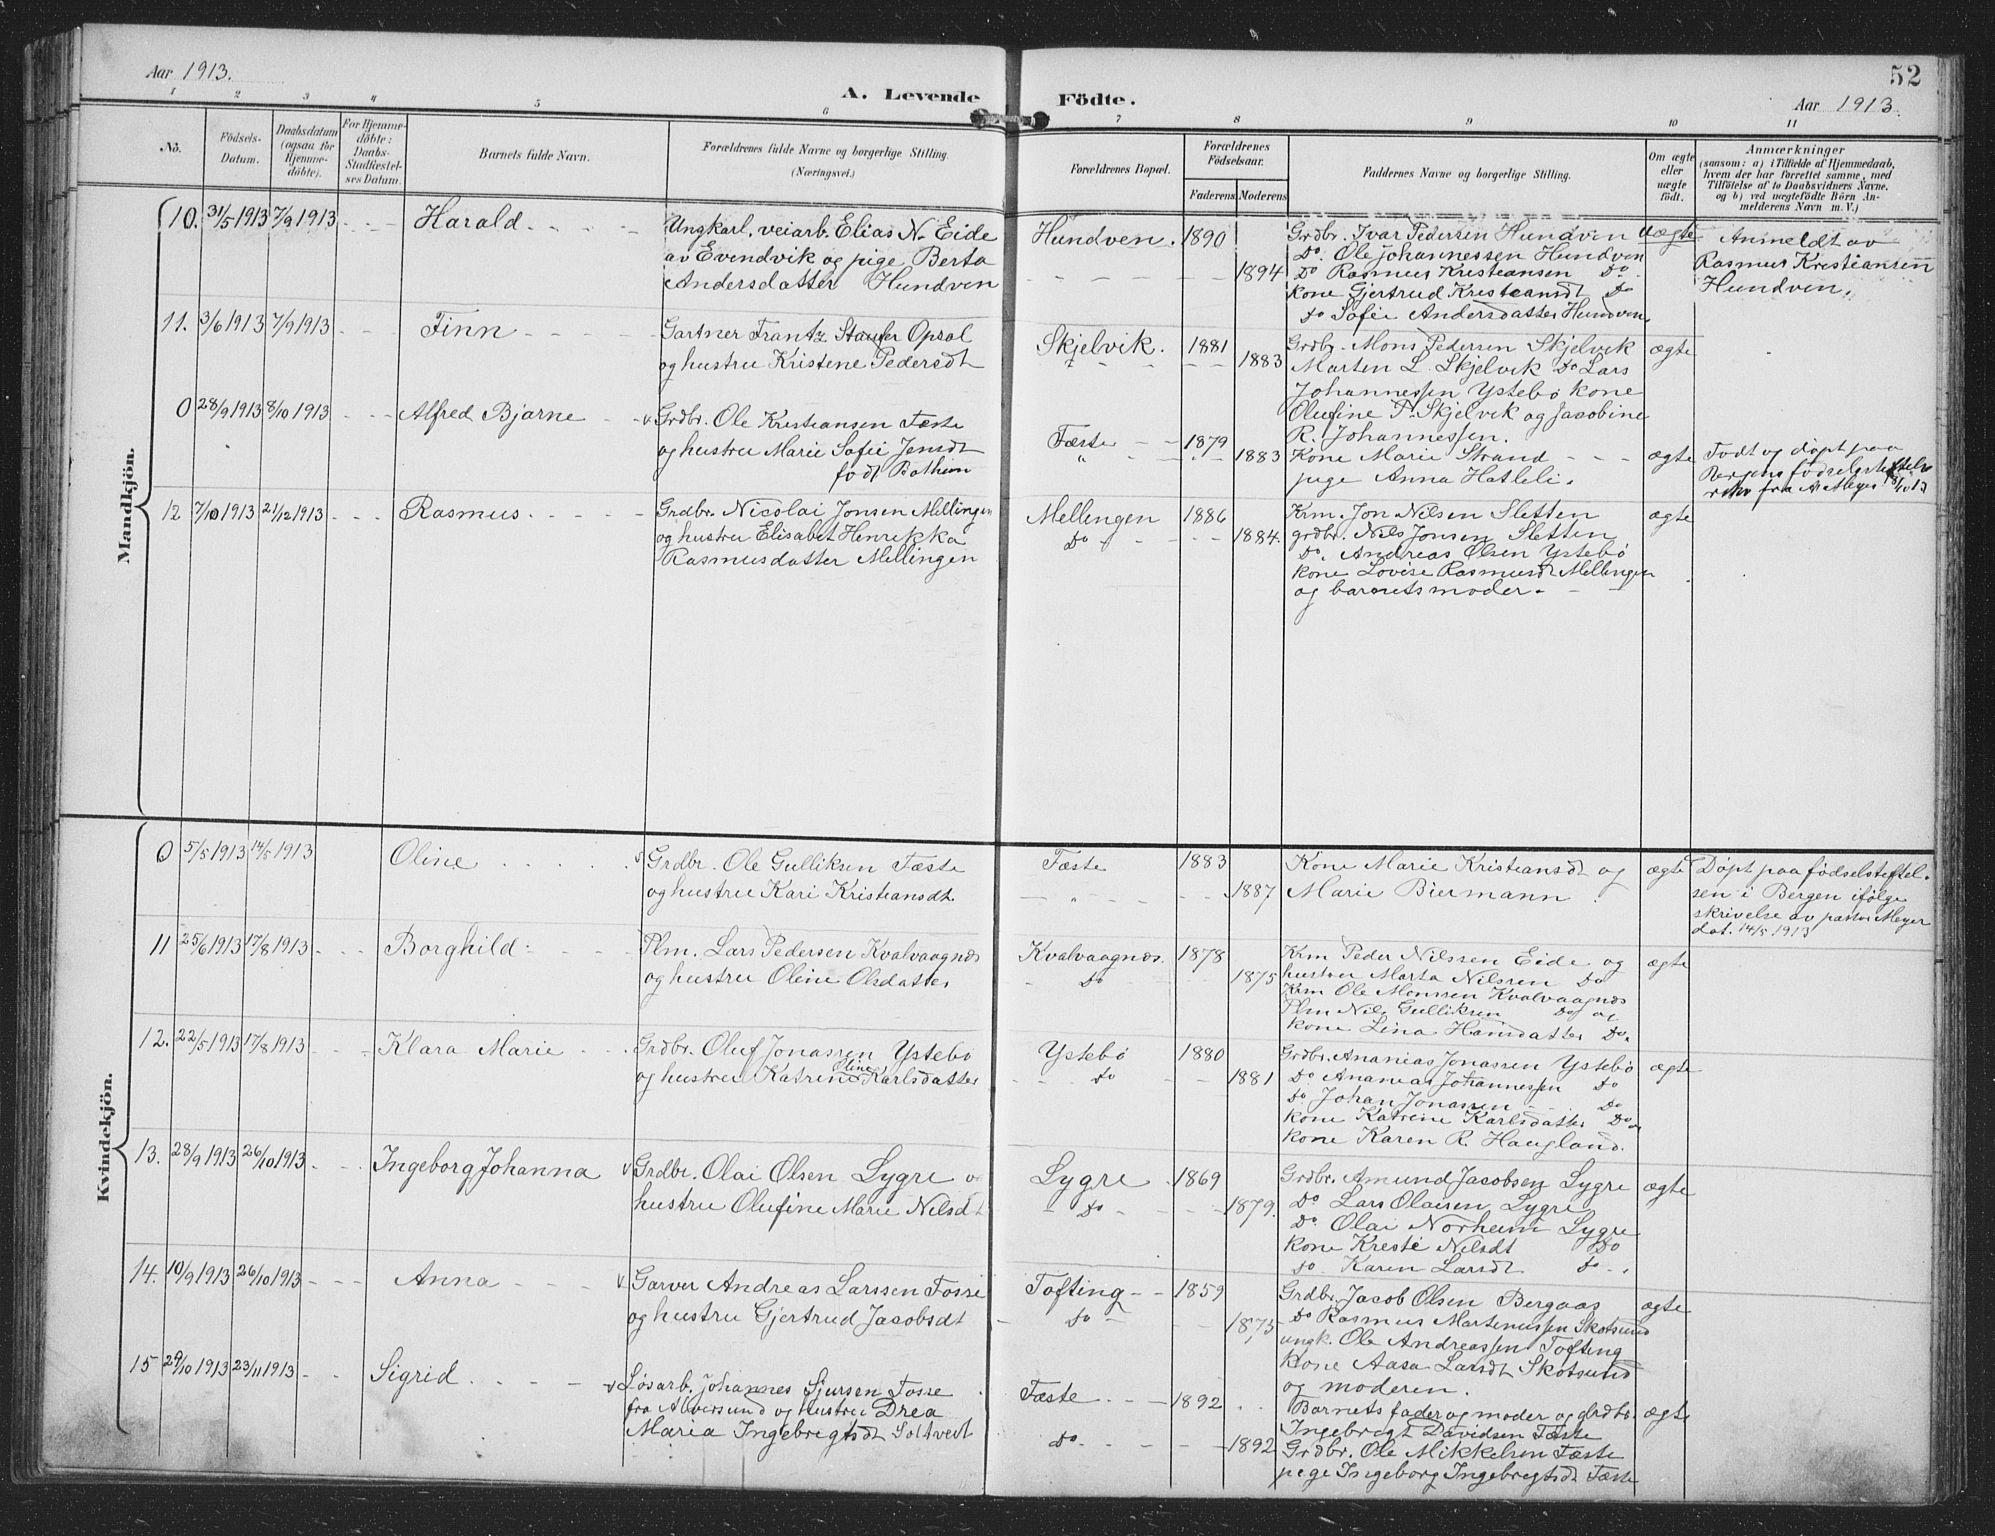 Aar 1913.
A. Levende Födte.
52
Aar 1913.
1 2 3 4 5 6 7 8 9 10 11
No.
Födsels-Datum.
Daabsdatum (ogsaa for Hjemmedöbte).
For Hjemmedöbte: Daabs-Stadfæstelses Datum.
Barnets fulde Navn.
Forældrenes fulde Navne og borgerlige Stilling. (Næringsvei.)
Forældrenes Bopæl.
Forældrenes Födselsaar.
Faderens. Moderens.
Faddernes Navne og borgerlige Stilling.
Om ægte eller uægte födt.
Anmærkninger
(saasom: a) i Tilfælde af Hjemmedaab, hvem der har forrettet samme, med Tilföielse af to Daabsvidners Navne, og b) ved uægtefödte Börn Anmelderens Navn m. V.)
Mandkjön.
10. 31/5 1913 7/9 1913 Harald
Ungkarl, veiarb. Elias N. Eide
av Evendvik og pige Berta
Andersdatter Hundven
Hundven. 1890
1894
Grdbr. Ivar Pedersen Hundven
Do. Ole Johannessen Hundven
Do Rasmus Kristiansen Do
kone Gjertrud Kristiansdt Do
Do Sofie Andersdatter Hundven
uægte
Anmeldt av
Rasmus Kristiansen
Hundven.
11. 3/6 1913 7/9 1913 Finn
Gartner Frantz Opsal
og hustru Kristene Pedersdt
Skjelvik. 1881
1883
Grdbr. Mons Pedersen Skjelvik
Marten L. Skjelvik Do Lars
Johannessen Ystebö kone
Olufine P. Skjelvik og Jacobine
R. Johannessen.
ægte
0 28/9 1913 8/10 1913 Alfred Bjarne
Grdbr. Ole Kristiansen Fæste
og hustru Marie Sofie Jensdt
född Bothun
Fæste 1879
" 1883
Kone Marie Strand
pige Anna Hatleli.
ægte
Född og döpt paa
Bergens
fra A. Meyer 18/10 13
12 7/10 1913 21/12 1913 Rasmus
Grdbr. Nicolai Jonsen Mellingen
og hustru Elisabet Henrikka
Rasmusdatter Mellingen
Mellingen 1886
Do 1884.
Krm. Jon Nilsen Sletten
grdbr. Nils Jonsen Sletten
Do. Andreas Olsen Ystebö
kone Lovise Rasmusdt Mellingen
og barnets moder.
ægte
Kvindekjön.
0 5/5 1913 14/5 1913 Oline
Grdbr. Ole Gulliksen Fæste
og hustru Kari Kristiansdt.
Fæste 1883
" 1887
Kone Marie Kristiansdt og
Marie Biermann
ægte
Döpt paa födselsstiftel-
sen i Bergen ifölge
skrivelse av pastor Meyer
dat. 14/5 1913
11 25/6 1913 17/8 1913 Borghild
Plm. Lars Pedersen Kvalvaagnes
og hustru Oline Olsdatter
Kvalvaagnes. 1878
Do 1875
Krm Peder Nilssen Eide og
hustru Marta Nilsen Do
Krm Ole Monssen Kvalvaagnes
Plm Nils Gulliksen Do og
kone Lina Hansdatter Do.
ægte
12. 22/5 1913 17/8 1913 Klara Marie
Grdbr. Oluf Jonassen Ystebö
og hustru Katrine Oline Karlsdatter
Ystebö 1880
Do 1881
Grdbr. Ananias Jonassen Ystebö
Do Ananias Johannessen Do
Do Johan Jonassen Do
kone Katrine Karlsdatter Do.
kone Karen R. Haugland.
ægte
13. 28/9 1913 26/10 1913 Ingeborg Johanna
Grdbr. Olai Olsen Lygre o
hustru Olufine Marie Nilsdt
Lygre 1869
Do 1879.
Grdbr. Amund Jacobsen Lygre
Do Lars Olaisen Lygre
Do. Olai Norheim Lygre
kone Kresté Nilsdt Do
Do. Karen Larsdt Do
ægte
14. 10/9 1913 26/10 1913 Anna
Garver Andreas Larssen Fosse
og hustru Gjertrud Jacobsdt
Tofting 1859
Do 1873
Grdbr. Jacob Olsen Bergaas
Do Rasmus Martenussen Skotsund
ungk. Ole Andreassen Tofting
Kone Aasa Larsdt Skotsund
og moderen.
ægte
15 29/10 1913 23/11 1913 Sigrid
Lösarb. Johannes Sjursen Fosse
fra Alversund og hustru Drea
Maria Ingebregtsdt Soltveit
Fæste 1892
Do. 1892
Barnets fader og moder og grdbr.
Ingebregt Davidsen Fæste
Grdbr. Ole Mikkelsen Fæste
pige Ingeborg Ingebregtsdt Fæste
ægte